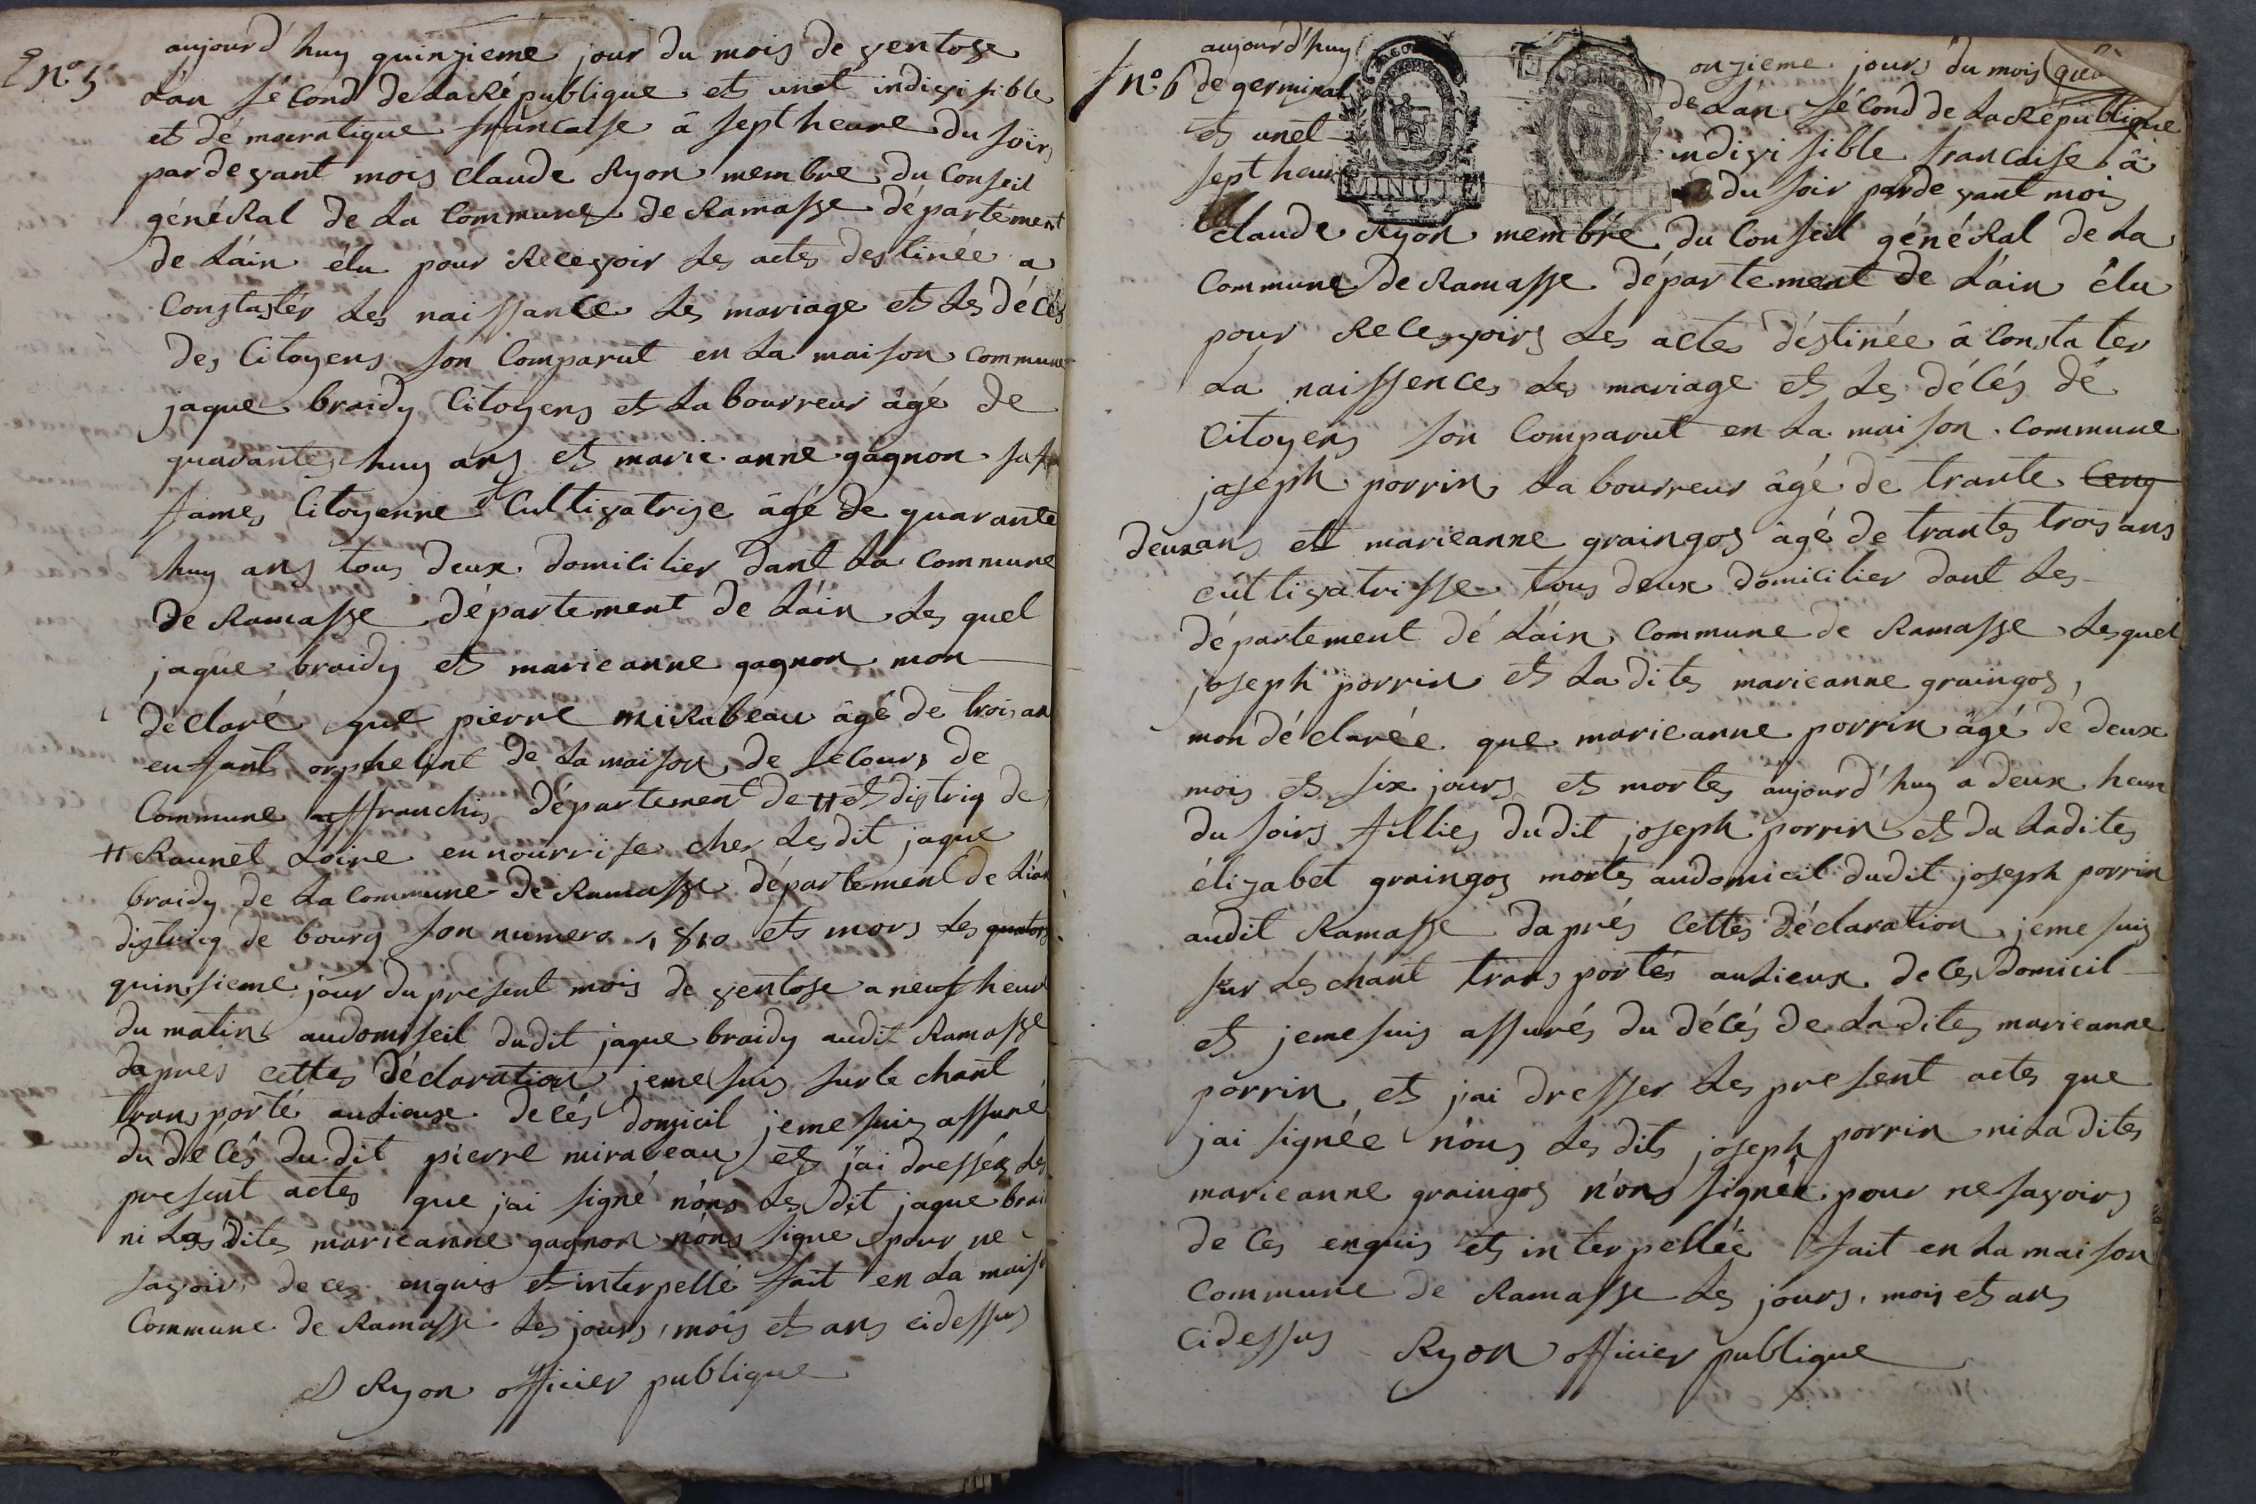 n.º 5
aujourd'huy quinzieme jour du mois de ventose
L'an sécond de La République et unet indivisible
et démocratique francaise â sept heure du soir
pardevant mois claude Ryon membre du Conseil
général de La Commune de Ramasse département
de L'ain élu pour Recevoir Les actes destinée a
Constaster Les naissance Les mariage et Les décés
des Citoyens son Comparut en La maison commune
jaque braidy Citoyens et Labourreur âgé de
quarante huy ans et marie anne gagnon sa
fame Citoyenne Cultivatrise âgé de quarante
huy ans tous deux domicilier dant La Commune
de Ramasse département de L'ain Les quel
jaque braidy et marieanne gagnon mon
déclaré que pierre miRabeau âgé de trois an
enfant orphelint de La maison de secours de
Commune affranchis département de # et distriq de
# Raunet Loire en nourrise cher Les dit jaque
braidy de La Commune de Ramasse département de L'ain
distriq de bourg son numero 1810 et mors Les quators
quinsieme jour du present mois de ventose a neuf heur
du matin audomiseil dudit jaque braidy audit Ramasse
daprés cettes déclaration jeme suis sur le chant
transporté auLieux de cés domicil jeme suis assuré
du decés du dit pierre mirabeau et j'ai dressér Les
present actes que j'ai signé n'ons Les dit jaque brai
ni Las dites marieanne gagnon n'ons signé pour ne
savoir de ces enquis et interpellé fait en La mais
Commune de Ramasse Les jours, mois et ans cidessus
Ryon officier publique
n.º 6
aujourd'huy onzieme jours du mois
de germinal de L'an sécond de La République
et unet indivisible francaise â
sept heur du soir pardevant mois
claude Ryon membre du Conseil général de La
Commune de Ramasse département de L'ain élu
pour Recevoirs Les actes déstinée â Constater
La naissences Les mariage et Les décés dé
Citoyens son Comparut en La maison Commune
joseph porrin Labourreur âgé de trante Cenq
deux ans et marieanne graingos âgé de trantes trois ans
cultivatrisse tous deux domicilier dant Les
département dé L'ain Commune de Ramasse Lesquel
joseph porrin et La dites marieanne graingos,
mon déclarée que marieanne porrin âgé de deux
mois et six jours et mortes aujourd'huy a deux heur
du soirs fillies dudit joseph porrin et da Ladites
élizabet graingos mortes audomicil dudit joseph porrin
audit Ramasse daprés Cettes déclaration jeme suis
sur Les chant transportés auLieux de Ces domicil
et jeme suis assurés du décés de La dites marieanne
porrin et j'ai dresser Les present actes que
j'ai signée n'ous Les dits joseph porrin ni La dites
marieanne graingos n'ons signée pour ne savoirs
de Ces enquis et interpellée fait en La maison
Commune de Ramasse Les jours, mois et ans
Cidessus Ryon officier publique
MINUTE
MINUTE